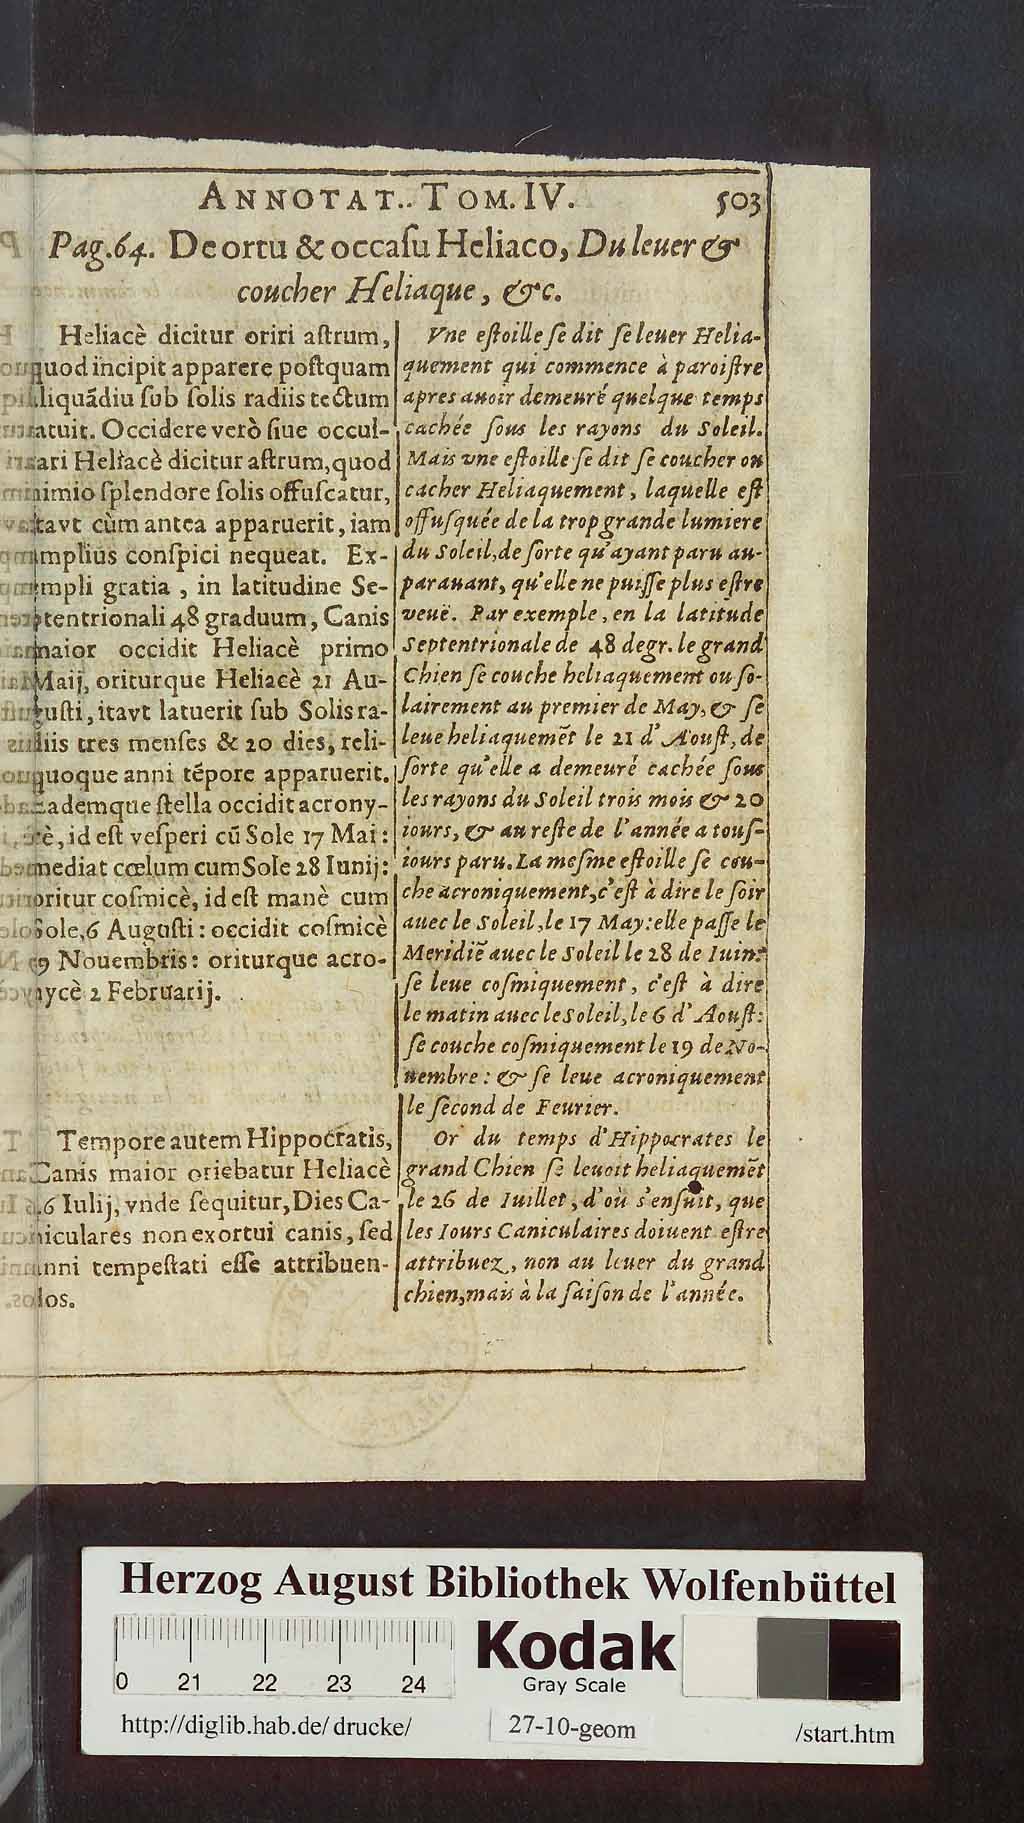 ANNOTAT.. TOM. IV. 503
Pag. 64. De ortu & occaſu Heliaco, Du leuer &
coucher Heliaque, &c.
Heliacè dicitur oriri aſtrum,
quod incipit apparere poſtquam
liquãdiu ſub ſolis radiis tectum
latuit. Occidere verò ſiue occul-
tari Heliacè dicitur aſtrum, quod
nimio ſplendore ſolis offuſcatur,
itavt cùm antea apparuerit, iam
amplius conſpici nequeat. Ex-
empli gratia, in latitudine Se-
ptentrionali 48 graduum, Canis
maior occidit Heliacè primo
Maij, oriturque Heliacè 21 Au-
guſti, itavt latuerit ſub Solis ra-
diis tres menſes & 20 dies, reli-
quoque anni tẽpore apparuerit.
Eademque ſtella occidit acrony-
cè, id eſt veſperi cũ Sole 17 Mai:
mediat cœlum cum Sole 28 Iunij:
oritur coſmicè, id eſt manè cum
Sole, 6 Auguſti: occidit coſmicè
19 Nouembris: oriturque acro-
nycè 2 Februarij.
Tempore autem Hippocratis,
Canis maior oriebatur Heliacè
26 Iulij, vnde ſequitur, Dies Ca-
niculares non exortui canis, ſed
anni tempeſtati eſſe attribuen-
dos.
Vne eſtoille ſe dit ſe leuer Helia-
quement qui commence à paroiſtre
apres auoir demeuré quelque temps
cachée ſous les rayons du Soleil.
Mais vne eſtoille ſe dit ſe coucher ou
cacher Heliaquement, laquelle eſt
offuſquée de la trop grande lumiere
du Soleil, de ſorte qu'ayant paru au-
parauant, qu'elle ne puiſſe plus eſtre
veuë. Par exemple, en la latitude
Septentrionale de 48 degr. le grand
Chien ſe couche heliaquement ou ſo-
lairement au premier de May, & ſe
leue heliaquemẽt le 21 d'Aouſt, de
ſorte qu'elle a demeuré cachée ſous
les rayons du Soleil trois mois & 20
iours, & au reſte de l'année a touſ-
iours paru. La meſme eſtoille ſe cou-
che acroniquement, c'eſt à dire le ſoir
auec le Soleil, le 17 May: elle paſſe le
Meridiẽ auec le Soleil le 28 de Iuin:
ſe leue coſmiquement, c'eſt à dire
le matin auec le Soleil, le 6 d'Aouſt:
ſe couche coſmiquement le 19 de No-
uembre: & ſe leue acroniquement
le ſecond de Feurier.
Or du temps d'Hippocrates le
grand Chien ſe leuoit heliaquemẽt
le 26 de Iuillet, d'où s'enſuit, que
les Iours Caniculaires doiuent eſtre
attribuez, non au leuer du grand
chien, mais à la ſaiſon de l'année.
Herzog August Bibliothek Wolfenbüttel
0 21 22 23 24
Kodak
Gray Scale
http://diglib.hab.de/drucke/ 27-10-geom /start.htm